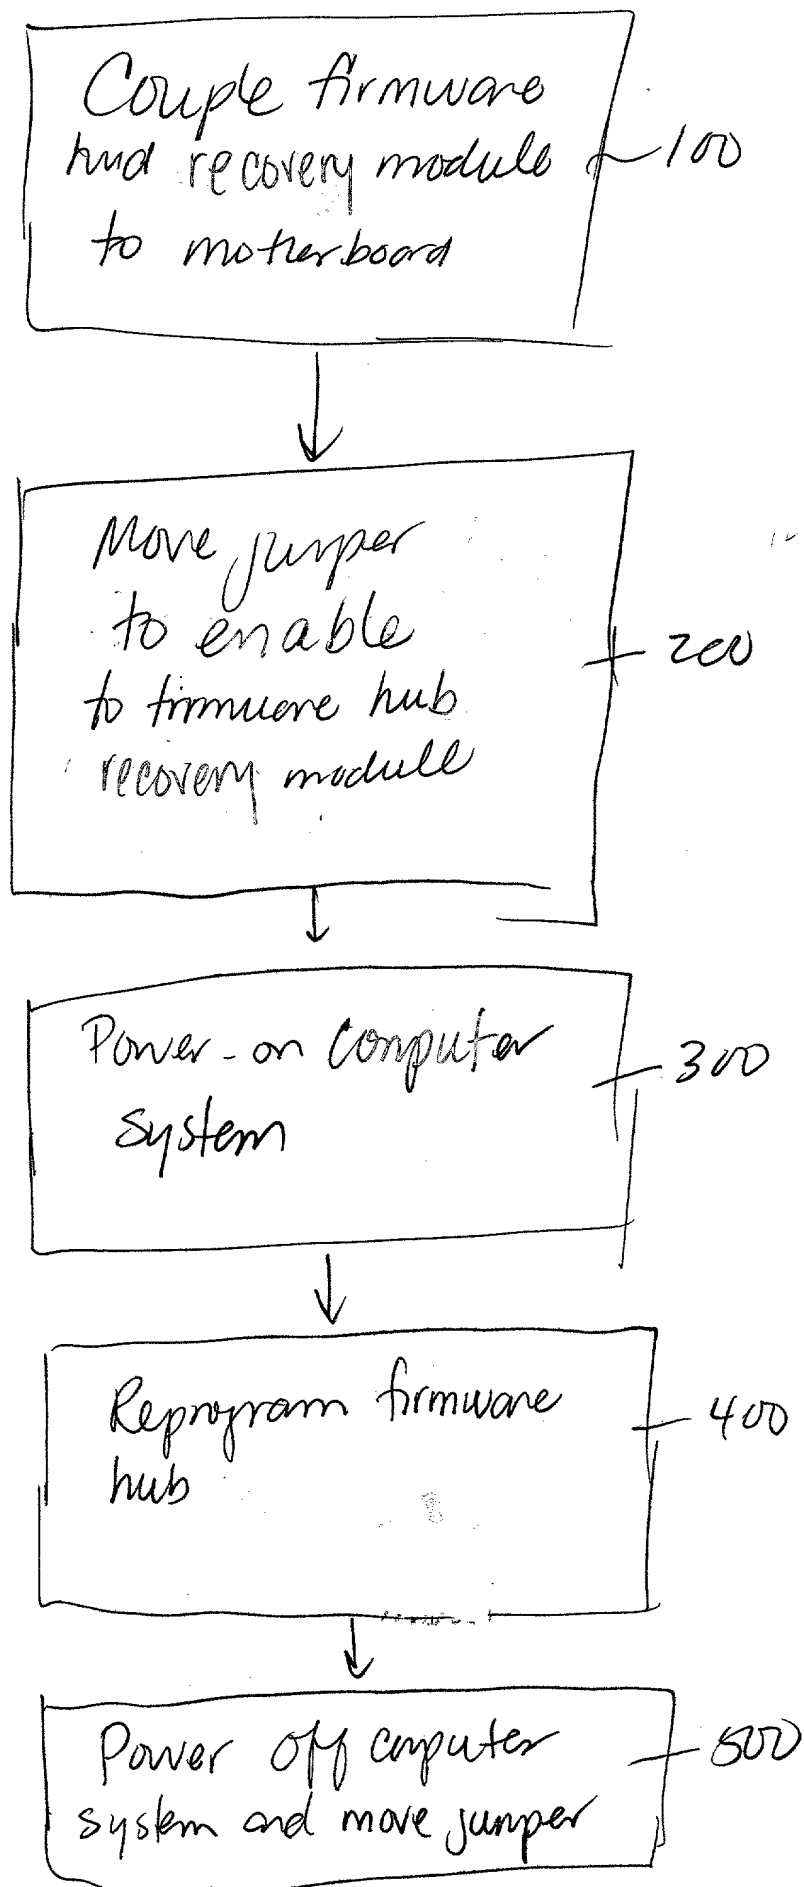 Couple firmware
hud recovery module
to motherboard
100
Move jumper
to enable
to firmware hub
recovery module
200
Power-on computer
system
300
Reprogram firmware
hub
400
Power off computer
system and move jumper
500